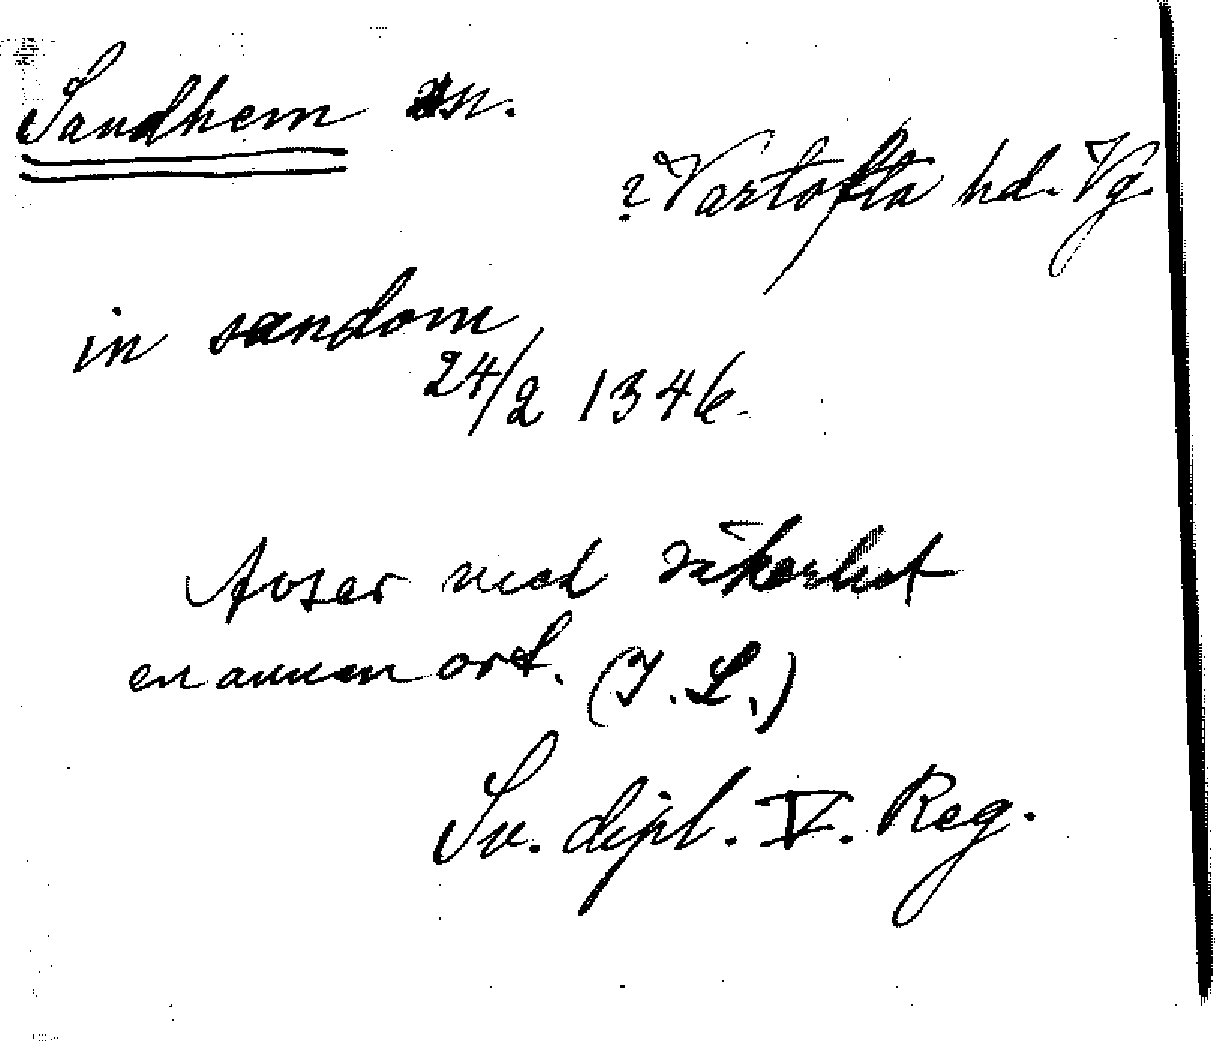 Sandhem sn.
? Vartofta hd. Vg
in sandom
24/2 1346.
Avser med säkerhet
en annan ort. (I. L.)
Sv. dipl. V. Reg.